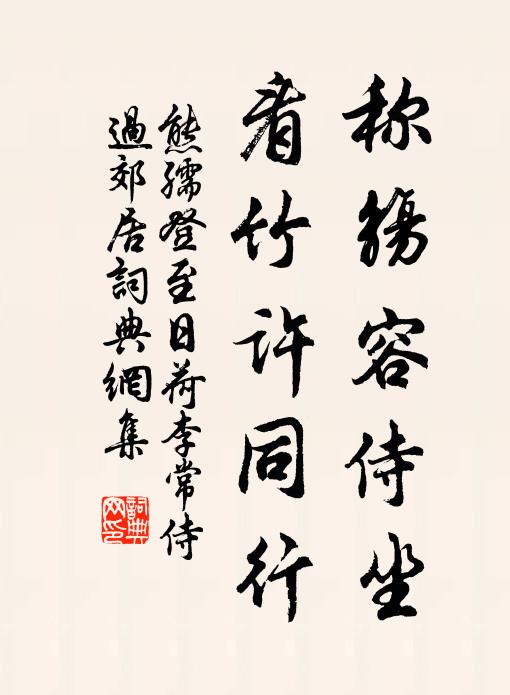 称觞容侍坐
看竹许同行
熊孺登至日荷李常侍
過郊居詞典網集
詞典网印